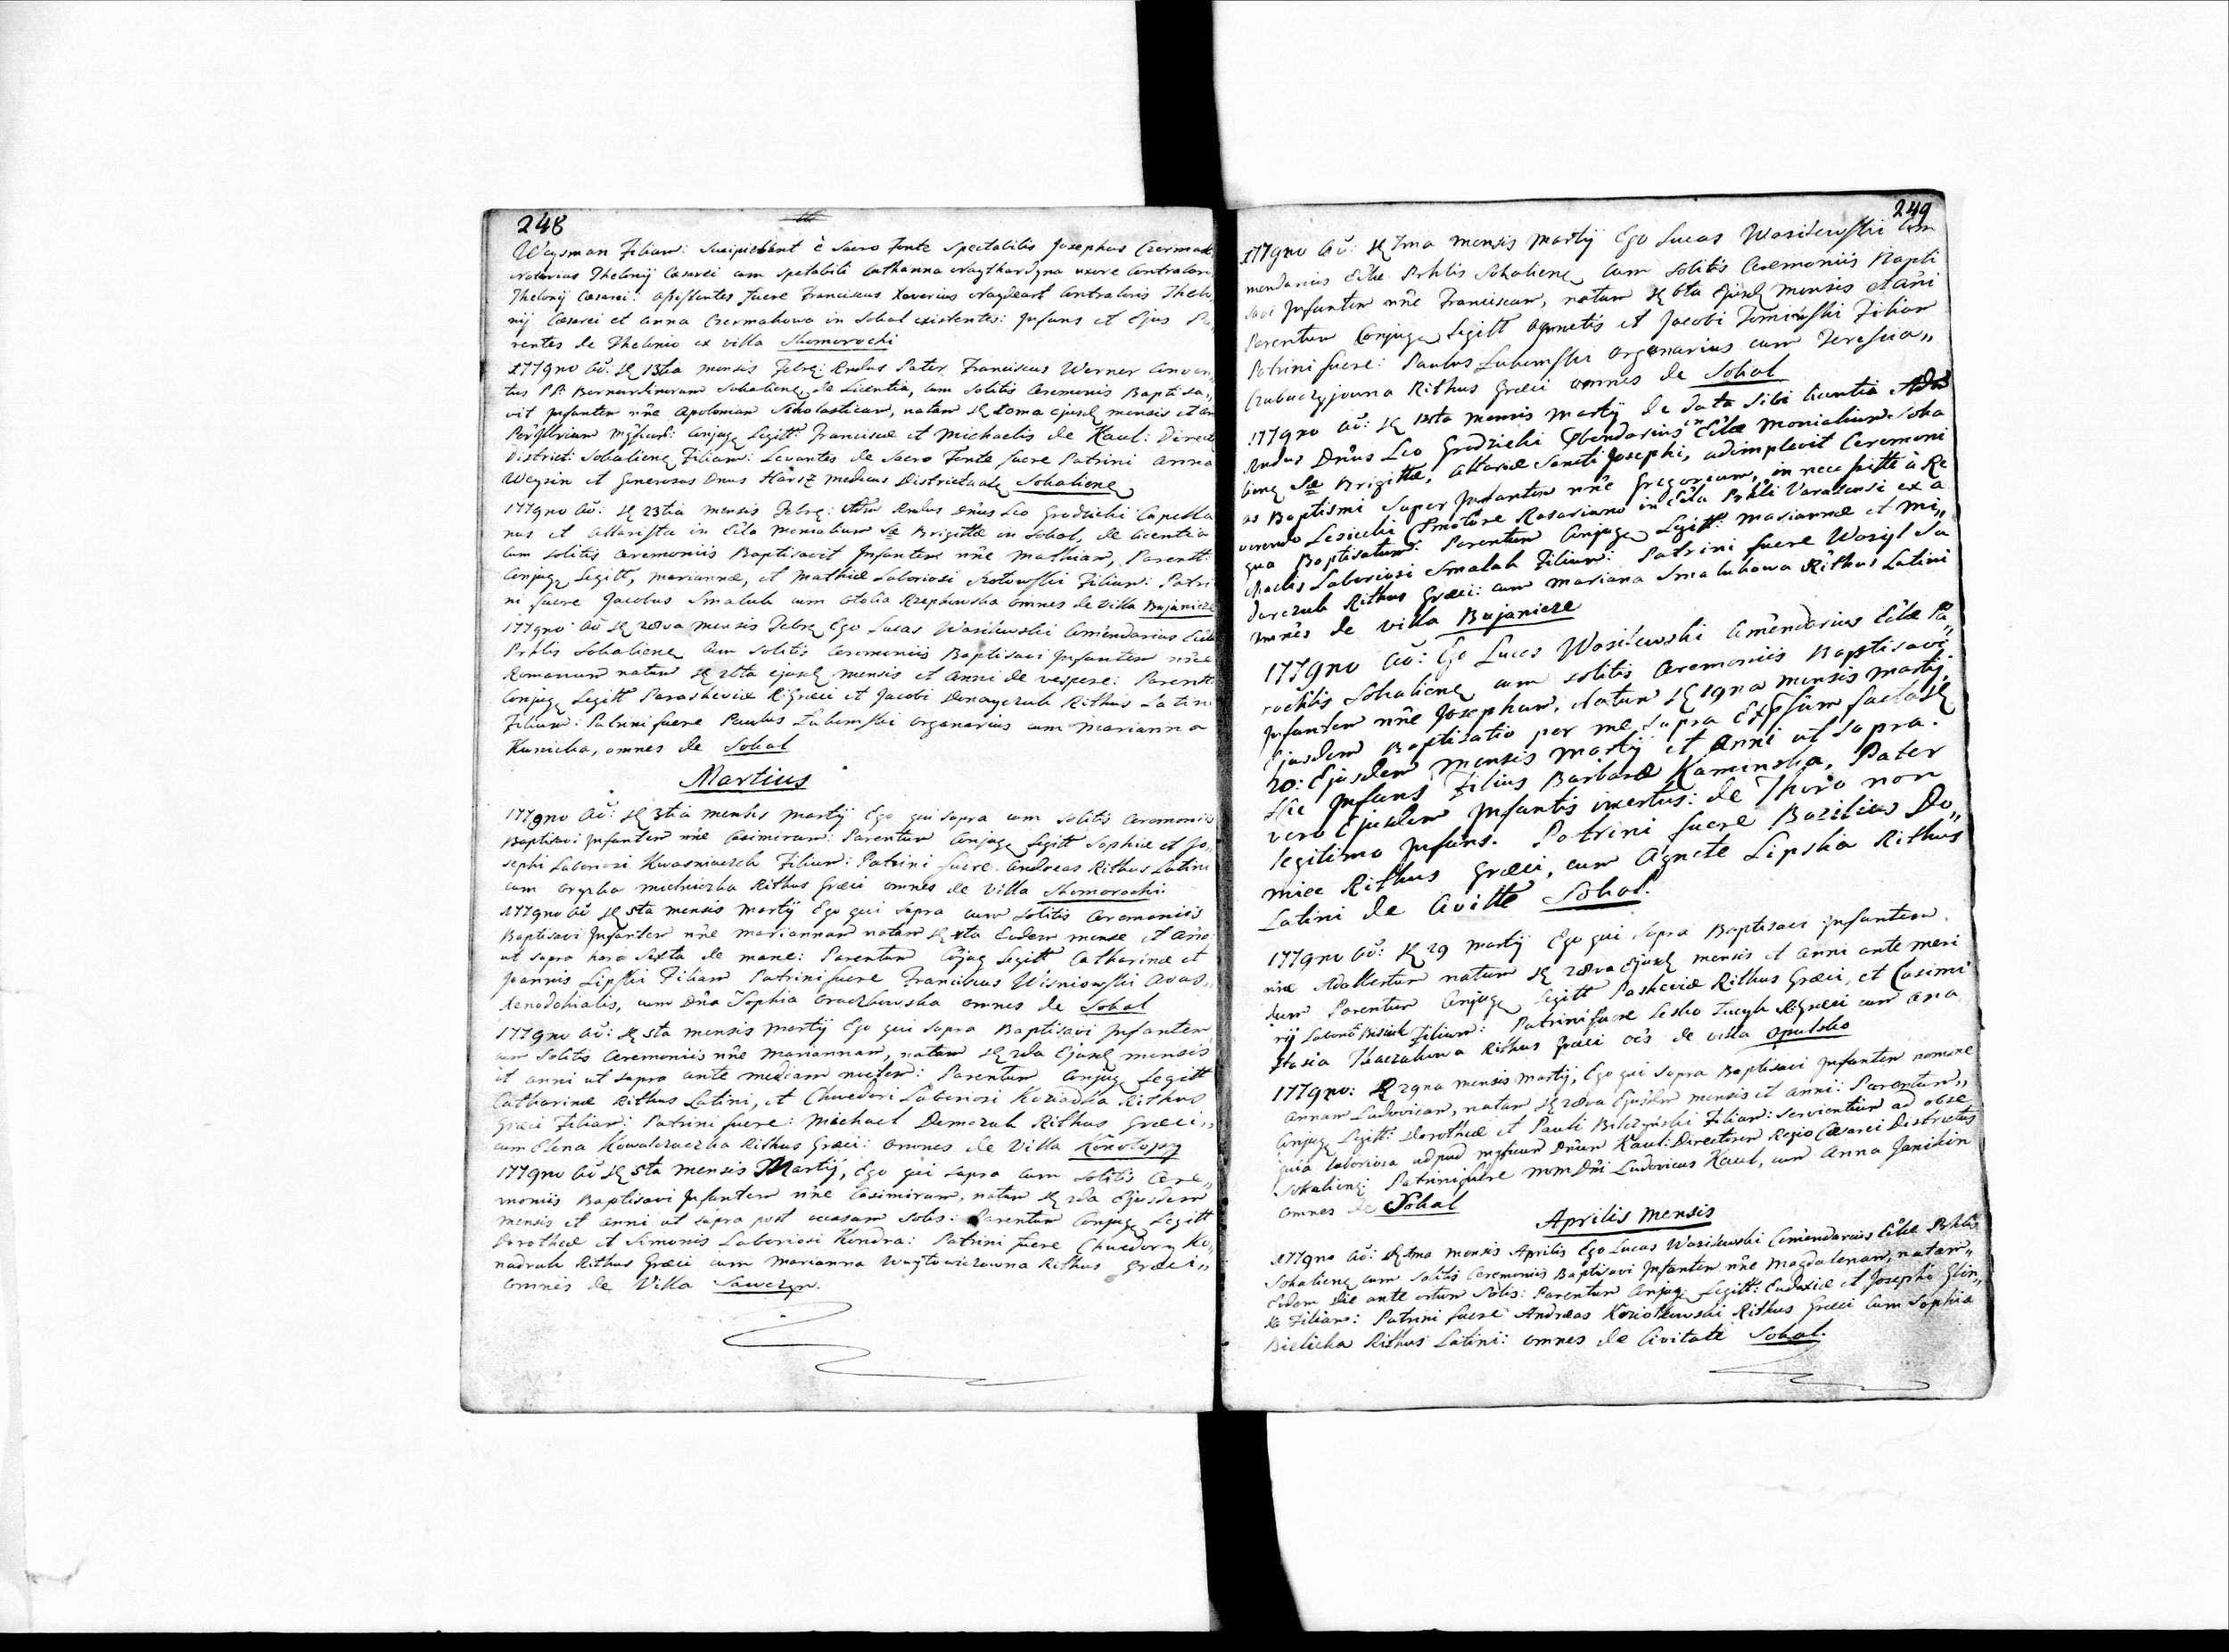 248
Weysman Filiam: Suscipiebant è Sacro Fonte Spectabilis Josephus Czermak
Notarius Thelonij Cæsarei cum Spetabili Catharina uxore Contralori
Thelonij Cæsarei: assistentes fuere Franciscus Xaverius Contraloris Thelo
nij Cæsarei et Anna Czermakowa in Sokal existentes: Infans et Ejus Pa
rentes de Thelonio ex villa Skomorochi
1779no Aõ: 13tia mensis Febrę: Rndus Pater Franciscus Werner Conven
tus PP: Bernardinorum Sokalienę de Licentia, cum Solitis Ceremoniis Baptisa„
vit Infantem nñe Apoloniam Scholasticam, natam 10ma ejusdę mensis et an
Conjugę Legitt: Franciscæ et Michaelis de Kaul: Direct
District: Sokalienę Filiam: Levantes de Sacro Fonte fuere Patrini Anna
Weysin et Generosus Dnus Harsz Medicus Districtualę Sokalienę
1779no Aõ: 23tia mensis Febrę: Adm Rndus Dñus Leo Grodzicki Capella
nus et Altarista in Ecla Monialium Sæ Brigittæ in Sokal, de licentia
cum solitis Ceremoniis Baptisavit Infantem nñe Mathiam, Parentt:
Conjugę Legitt, Mariannæ, et Mathiæ Laboriosi Kotowski Filium: Patri
ni fuere Jacobus Smaluh cum Otolia Rzepkowska omnes de villa Bujanicze
1779no Aõ 28va mensis Febrę Ego Lucas Wasilewski Comendarius Eclæ
Prhlis Sokalienę Cum solitis Ceremoniis Baptisavi Infantem nñe
Romanum natum 26ta ejusdę mensis et Anni de vespere: Parentt:
Conjugę Legitt Paraskeviæ R Græci et Jacobi Rithus Latini
Filium: Patrini fuere Paulus Lubemski organarius cum Marianna
Kunicka, omnes de Sokal
Martius
1779no Aõ: 3tia mensis Martij Ego qui supra cum solitis Ceremoniis
Baptisavi Infantem nñe Casimirum: Parentum Conjugę Legitt Sophiæ et Jo„
sephi Laboriosi Kwasniaczek Filium: Patrini fuere Andreas Rithus Latini
cum Orgzka Michniczka Rithus Græci omnes de villa Skomorochi
1779no Aõ 5ta mensis Martij Ego qui Supra cum Solitis Ceremoniis
Baptisavi Infantem nñe Mariannam natam Eodem mense et Año
ut supra hora sexta de mane: Parentum Cõjug Legitt Catharinæ et
Joannis Lipski Filiam Patrini fuere Franciscus Wisniowski
Xenodohialis, cum Dña Sophia omnes de Sokal
1779no Aõ: 5ta mensis Martij Ego qui Supra Baptisavi Infantem
cum Solitis Ceremoniis nñe Mariannam, natam 2da Ejusdę mensis
et anni ut supra ante mediam noctem: Parentum Conjugę Legitt
Catharinæ Rithus Latini, et Chwedori Laboriosi Koziadka Rithus
Græci Filiam: Patrini fuere: Michael Demczuk Rithus Græci„
cum Elena Kowalczuczka Rithus Græci: omnes de Villa Konotopy
1779no Aõ 5ta mensis Martij, Ego qui Supra cum solitis Cere„
moniis Baptisavi Infantem nñe Casimirum, natum 2da Ejusdem
mensis et anni ut supra post occasum Solis: Parentum Conjugę Legitt
Dorotheæ et Simonis Laboriosi Kondra: Patrini fuere Chwedory Ko„
nadruk Rithus Græci cum Marianna Woytowiczowna Rithus Græci„
omnes de Villa Sawczyn.
249
1779no Aõ: 7ma mensis Martij Ego Lucas Wasilewski Com
mendarius Eclæ Prhlis Sokalienę Cum solitis Ceremoniis Bapti
savi Infantem nñe Franciscum, natum 6ta Ejusdę mensis et añi
Parentum Conjugę Legitt Agnetis et Jacobi Filium
Patrini fuere: Paulus Lubemski organarius cum Teressia„
Rithus Græci omnes de Sokal
1779no Aõ: 13ta mensis Martij de data Sibi licentia Adm
Rndus Dñus Leo Grodzicki in Ecla Monialium Soka
lienę Sæ Brigittæ, Altariæ Sancti Josephi, adimplevit Ceremoni
as Baptismi Super Infantem nñe Gregorium, in necessitte à Re
verendo Lesiecki Pmotore Rosariano in Ecla Prhli Varalensi ex a
qua Baptisatum: Parentum Conjugę Legitt: Mariannæ et Mi„
chaelis Laboriosi Smalah Filium: Patrini fuere Wasyl Sa
darczuk Rithus Græci: cum Mariana Smaluhowa Rithus Latini
omnes de villa Bujanicze
1779no Aõ: Ego Lucas Wasilewski Comendarius Eclæ Pa„
rochlis Sokalienę cum solitis Ceremoniis Baptisavi
Infantem nñe Josephum, Natum 19na mensis Martij,
Ejusdem Baptisatio per me supra Expssum facta
20: Ejusdem mensis Martij et Anni ut Supra.
Hic Infans Filius Barbaræ Kaminska, Pater
vero Ejusdem Infantis incertus: de Thoro non
legitimo Infans. Patrini fuere Bazilius Do„
micz Rithus Græci, cum Agnete Lipska Rithus
Latini de Civitte Sokal.
1779no Aõ: 29 Martij Ego qui Supra Baptisavi Infantem
nñe Adalbertum natum 28va Ejusdę mensis et Anni ante meri
diem Parentum Conjugę Legitt Paskeviæ Rithus Græci, et Casimi
rij Filium: Patrini fuere Lesko R Græci cum Ana
stasia Tkaczukowa Rithus Græci oẽs de villa Opulsko
1779no: 29na mensis Martij, Ego qui Supra Baptisavi Infantem nomine
Annam Ludovicam, natam 28va Ejusdem mensis et Anni: Parentum„
Conjugę Legitt: Dorotheæ et Pauli Bilczynski Filiam: Servientium ad obse
quia laboriosa apud Dñum Kaul: Directorem Regio Cæsarei Districtus
Sokalienę: Patrini fuere Dñi Ludovicus Kaul, cum Anna Janikin
omnes de Sokal
Aprilis Mensis
1779no Aõ: 1ma mensis Aprilis Ego Lucas Wasilewski Comendarius Eclæ Prhlis
Sokalienę cum Solitis Ceremoniis Baptisavi Infantem nñe Magdalenam, natam„
Eodem die ante ortum Solis: Parentum Conjugę Legitt: Eudoxiæ et Josephi Glin„
ka Filiam: Patrini fuere Andreas Koziotkowski Rithus Græci cum Sophia
Bielicka Rithus Latini: omnes de Civitate Sokal.